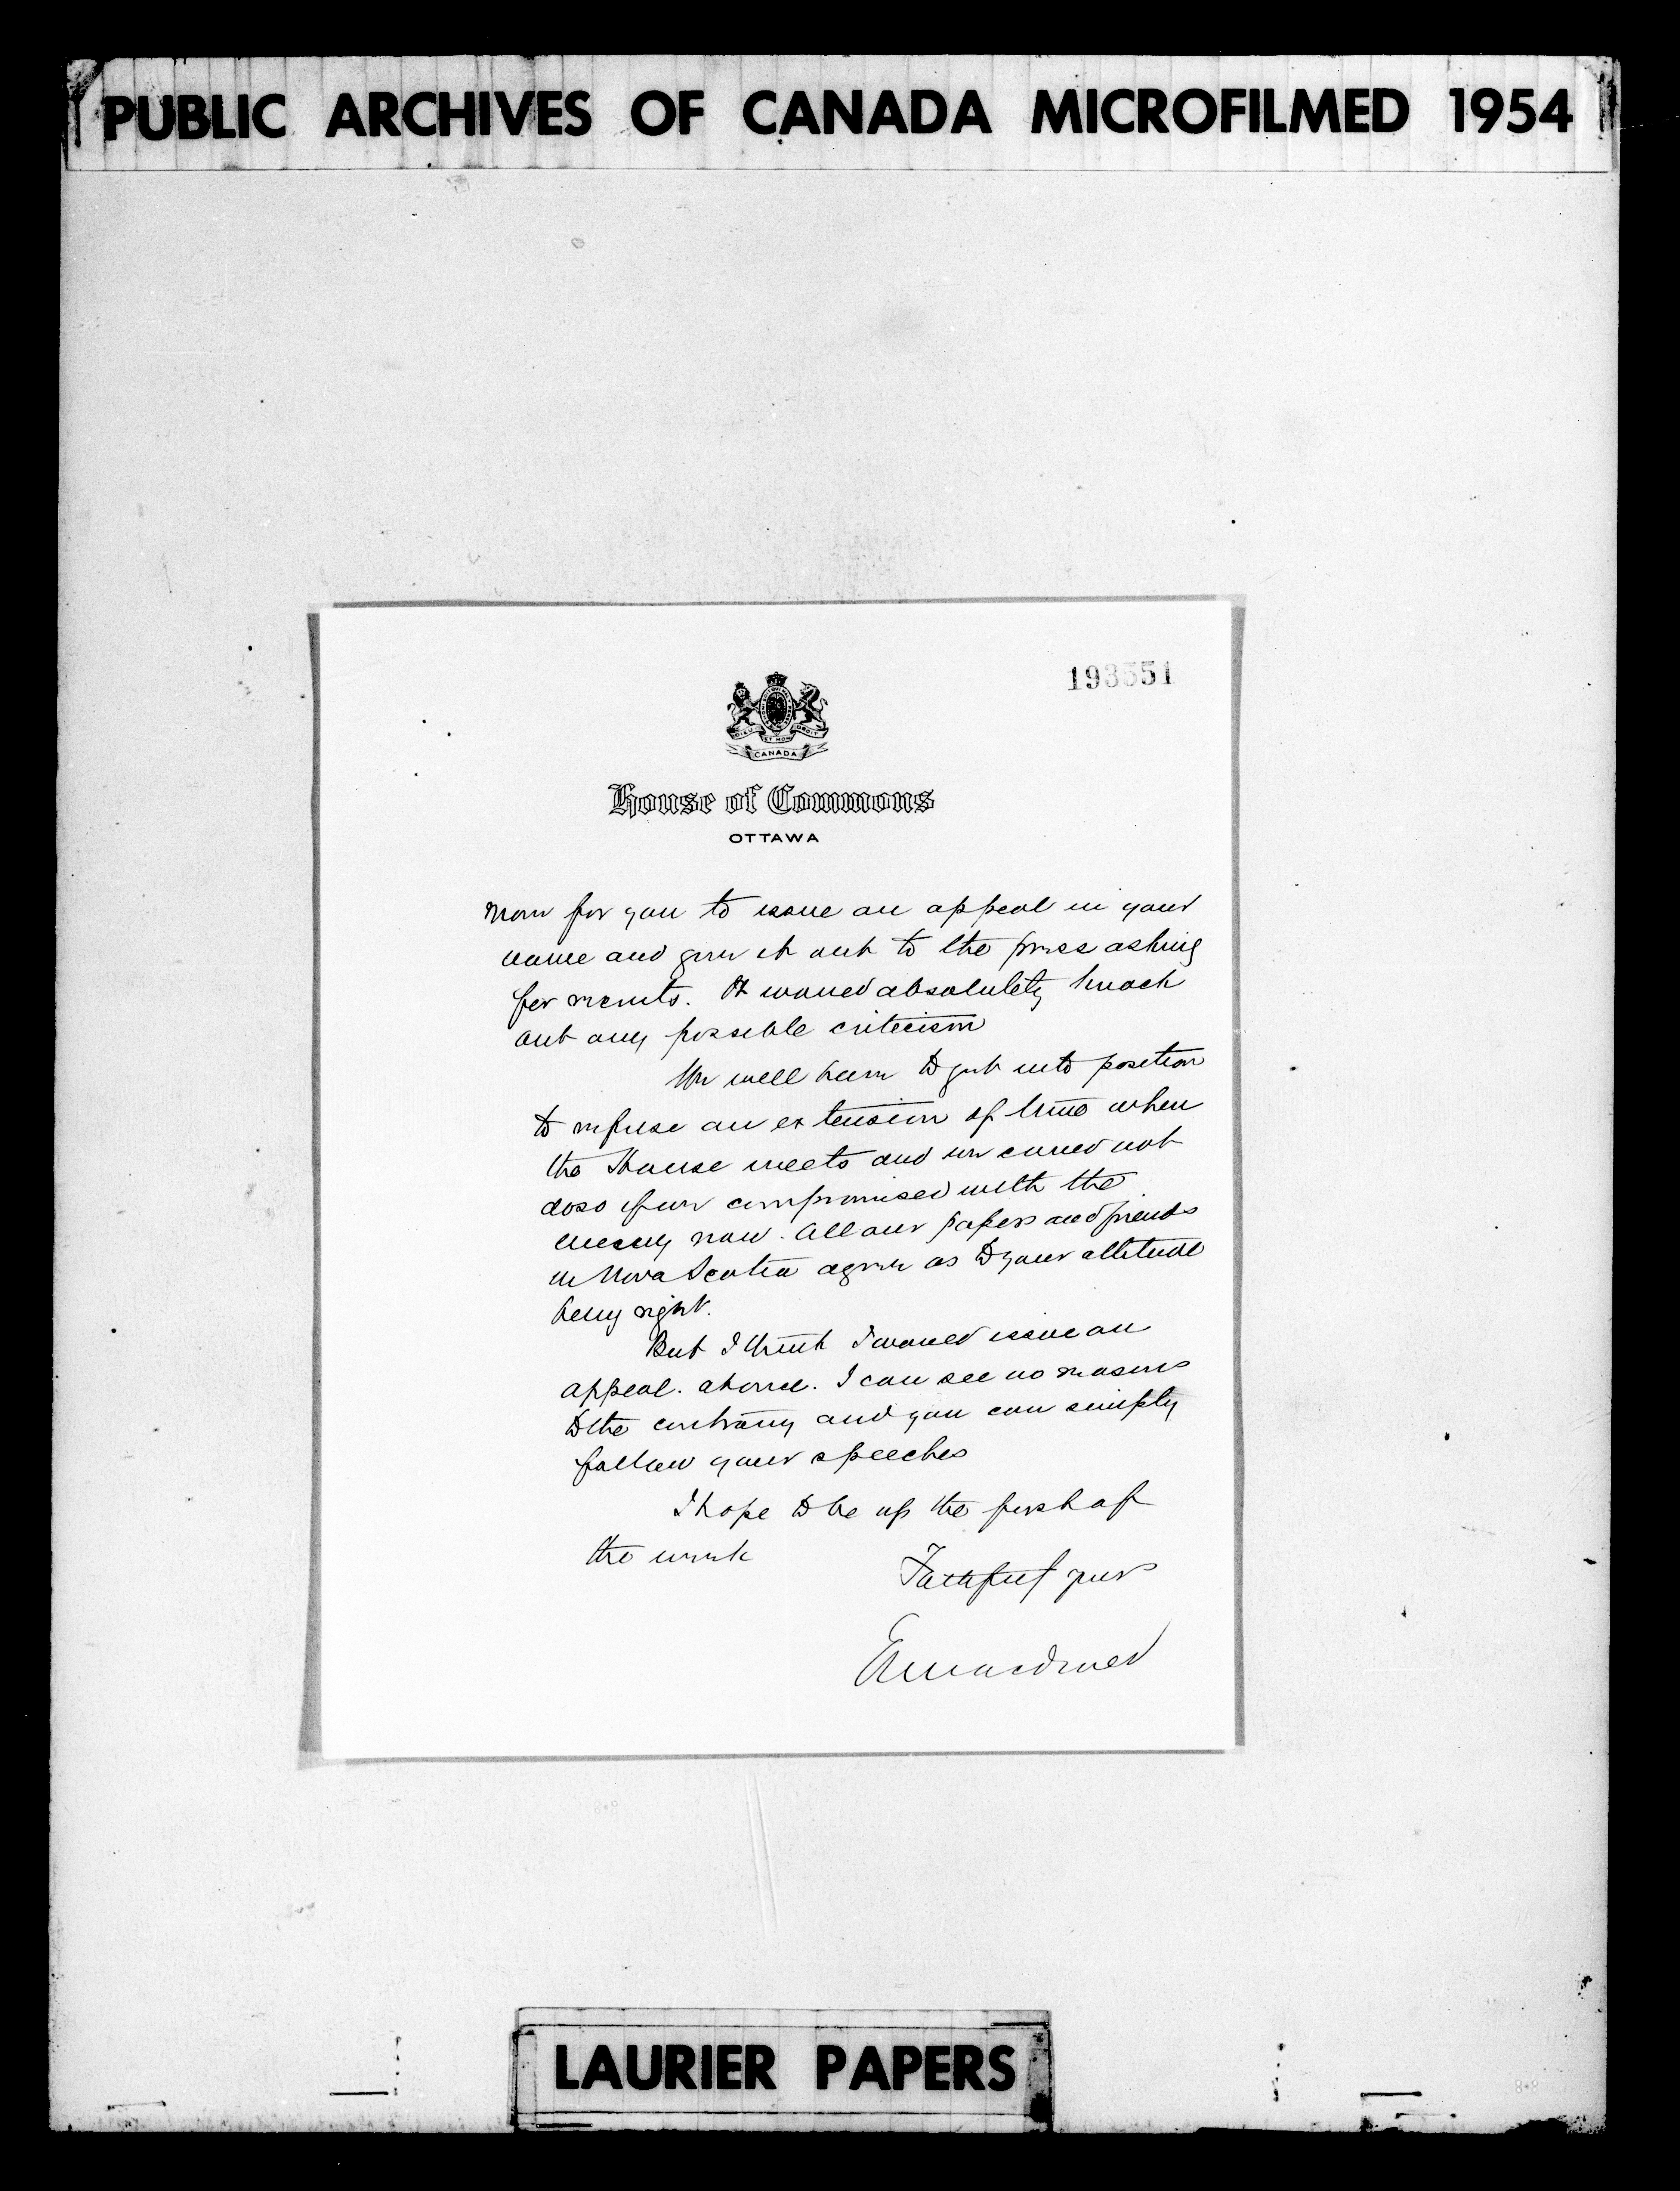 PUBLIC ARCHIVES OF CANADA MICROFILMED 1954
193551
DIEU ET MON DROIT
CANADA
House of Commons
OTTAWA
now for you to issue an appeal in your
name and give it out to the press asking
for recruits. It would absolutely knock
out any possible criticism
We will have to get into position
to refuse an extension of time when
the House meets and we could not
do so if we compromised with the
enemy now. All our papers and friends
in Nova Scotia agree as to your attitude
being right.
But I think I would issue an
appeal. at once. I can see no reasons
to the contrary and you can simply
follow your speeches
I hope to be up the first of
the week
Faithful yours
EMMacdonald
LAURIER PAPERS